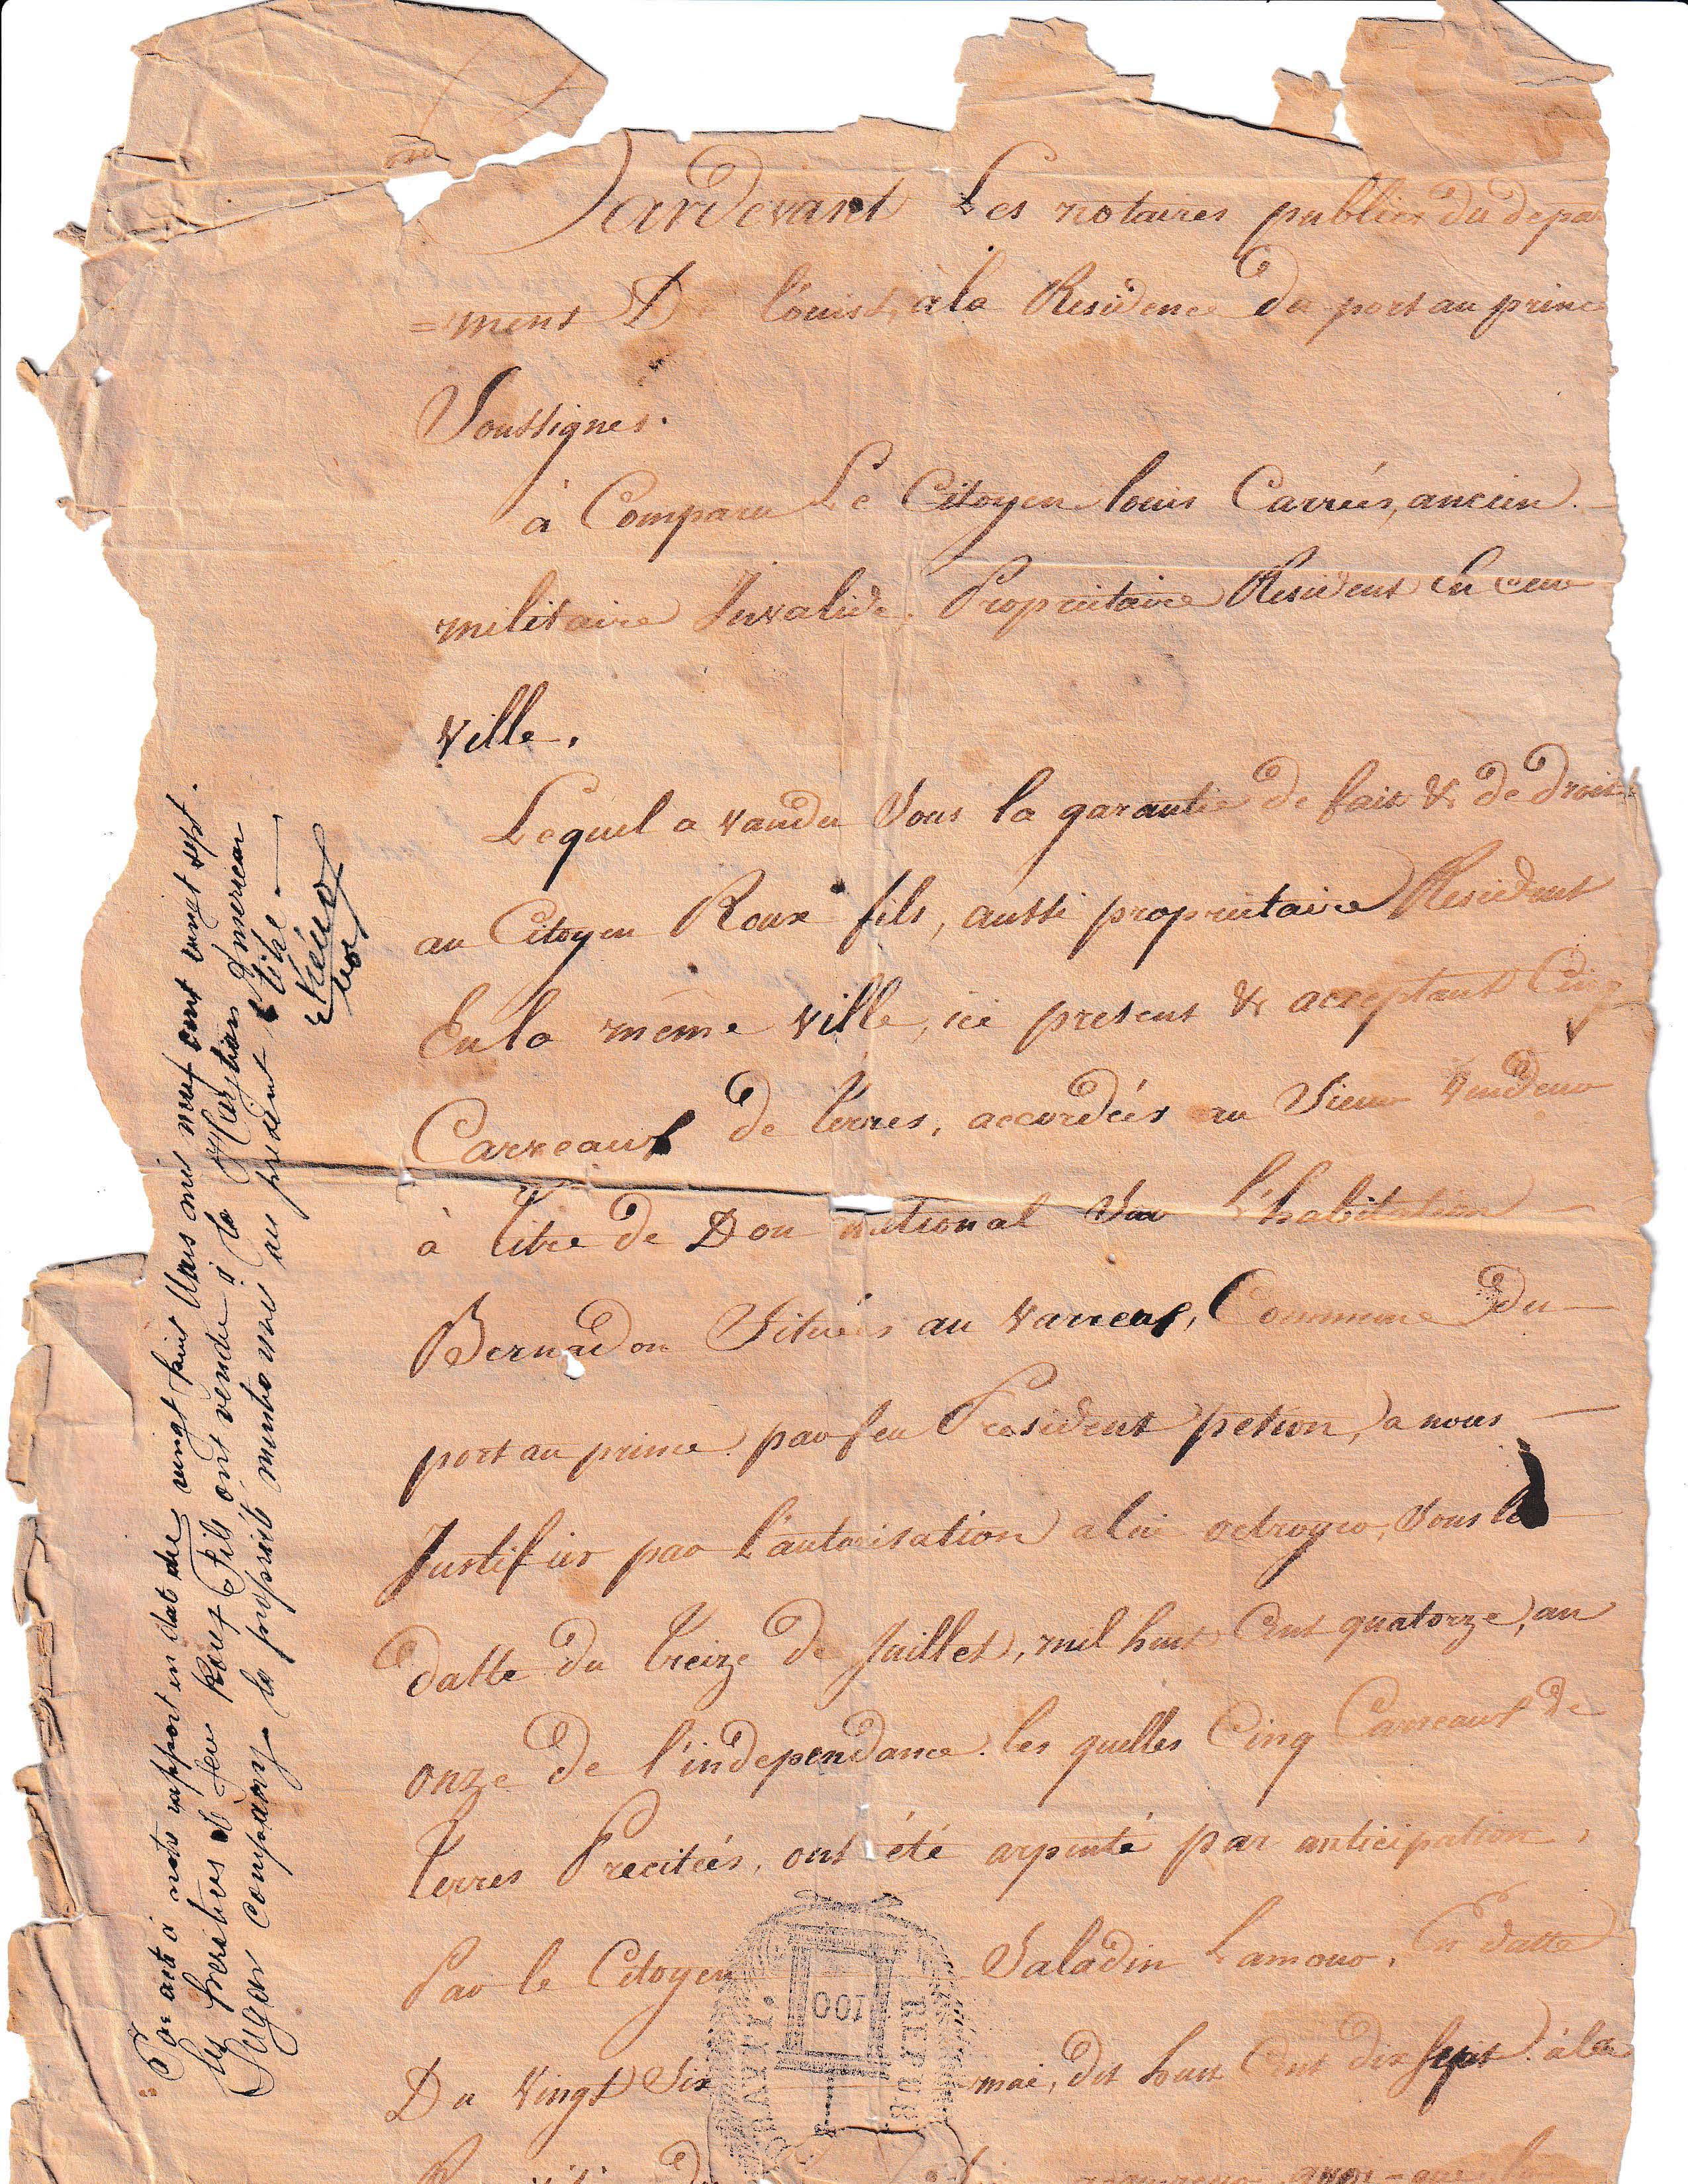 Pardevant Les notaires publics du depa
=ment De l'ouist, à la Residence du port au prince
Soussignés.
à Comparu Le Citoyen louis Carreés, ancien
militaire Invalide. Proprietaire Resident en cette
ville.
Lequel a vandu Sous la garantie de fait & de droit
au Citoyen Roux fils, aussi proprietaire Resident
En la même ville, ici present & acceptant Cinq
Carreaux de terres, accordées au Sieur Vendeur
à titre de Don national Sur l'habitation
Bernadon Situées au Varreux, Commune du
port au prince par feu President petion, a nous
Justifier par l'autorisation a lui octroyer, Sous la
datte du treize de Juillet, mil huit Cent quatorze, an
onze de l'independance. les quelles Cinq Carreaux de
terres Precitées, ont été arpenté par anticipation,
Par le Citoyen Saladin Lamour, En datte
Du Vingt Six mai, dit huit Cent dix Sept. à la
HAYTI. REPUB
100
Par acte à notre rapport en date du vingt huit Mars mil neuf cent vingt sept.
les heritiers de feu Roux Fils ont vendu à la Haytian American
Sugar Company la propriété mentionnée au présent titre